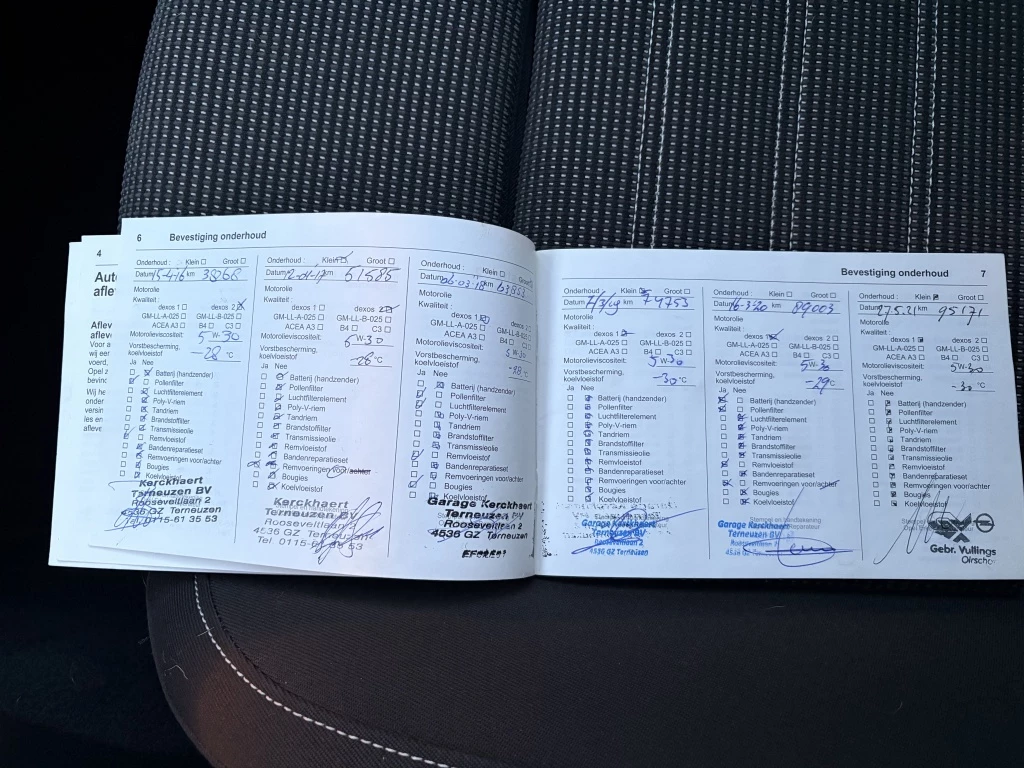 4
Aut
afle
Voor a
wij een
voerd,
Opel z
bevind
Wij he
onder
versin
les en
afleve
6 Bevestiging onderhoud
Onderhoud : Klein Groot
Datum 15-4-16 km 38268
Motorolie
Kwaliteit :
dexos 1 dexos 2
GM-LL-A-025 GM-LL-B-025
ACEA A3 B4 C3
Motorolieviscositeit: 5W-30
Vorstbescherming,
koelvloeistof -28 °C
Ja Nee
Batterij (handzender)
Pollenfilter
Luchtfilterelement
Poly-V-riem
Tandriem
Brandstoffilter
Transmissieolie
Remvloeistof
Bandenreparatieset
Remvoeringen voor/achter
Bougies
Koelvloeistof
Kerckhaert
Terneuzen BV
Rooseveltlaan 2
4536 GZ Terneuzen
Tel. 0115-61 35 53
Onderhoud : Klein Groot
Datum 12-01-17 km 51585
Motorolie
Kwaliteit :
dexos 1 dexos 2
GM-LL-A-025 GM-LL-B-025
ACEA A3 B4 C3
Motorolieviscositeit: 5W-30
Vorstbescherming,
koelvloeistof -28 °C
Ja Nee
Batterij (handzender)
Pollenfilter
Luchtfilterelement
Poly-V-riem
Tandriem
Brandstoffilter
Transmissieolie
Remvloeistof
Bandenreparatieset
Remvoeringen voor/achter
Bougies
Koelvloeistof
Kerckhaert
Terneuzen BV
Rooseveltlaan 2
4536 GZ Terneuzen
Tel. 0115-61 35 53
Onderhoud : Klein Groot
Datum 06-03-18 km
Motorolie
Kwaliteit :
dexos 1 dexos 2
GM-LL-A-025 GM-LL-B-025
ACEA A3 B4 C3
Motorolieviscositeit: 5W-30
Vorstbescherming,
koelvloeistof -28 °C
Ja Nee
Batterij (handzender)
Pollenfilter
Luchtfilterelement
Poly-V-riem
Tandriem
Brandstoffilter
Transmissieolie
Remvloeistof
Bandenreparatieset
Remvoeringen voor/achter
Bougies
Koelvloeistof
Garage Kerckhaert
Terneuzen BV
Rooseveltlaan 2
4536 GZ Terneuzen
Bevestiging onderhoud 7
Onderhoud : Klein Groot
Datum km 74753
Motorolie
Kwaliteit :
dexos 1 dexos 2
GM-LL-A-025 GM-LL-B-025
ACEA A3 B4 C3
Motorolieviscositeit: 5W-30
Vorstbescherming,
koelvloeistof -30 °C
Ja Nee
Batterij (handzender)
Pollenfilter
Luchtfilterelement
Poly-V-riem
Tandriem
Brandstoffilter
Transmissieolie
Remvloeistof
Bandenreparatieset
Remvoeringen voor/achter
Bougies
Koelvloeistof
Garage Kerckhaert
Terneuzen BV
Rooseveltlaan 2
4536 GZ Terneuzen
Onderhoud : Klein Groot
Datum 16-3-20 km 89003
Motorolie
Kwaliteit :
dexos 1 dexos 2
GM-LL-A-025 GM-LL-B-025
ACEA A3 B4 C3
Motorolieviscositeit: 5W-30
Vorstbescherming,
koelvloeistof -29 °C
Ja Nee
Batterij (handzender)
Pollenfilter
Luchtfilterelement
Poly-V-riem
Tandriem
Brandstoffilter
Transmissieolie
Remvloeistof
Bandenreparatieset
Remvoeringen voor/achter
Bougies
Koelvloeistof
Stempel en handtekening
Garage Kerckhaert
Terneuzen BV
Rooseveltlaan 2
4536 GZ
Onderhoud : Klein Groot
Datum km 95171
Motorolie
Kwaliteit :
dexos 1 dexos 2
GM-LL-A-025 GM-LL-B-025
ACEA A3 B4 C3
Motorolieviscositeit: 5W-30
Vorstbescherming,
koelvloeistof -30 °C
Ja Nee
Batterij (handzender)
Pollenfilter
Luchtfilterelement
Poly-V-riem
Tandriem
Brandstoffilter
Transmissieolie
Remvloeistof
Bandenreparatieset
Remvoeringen voor/achter
Bougies
Koelvloeistof
Gebr. Vullings
Oirschot